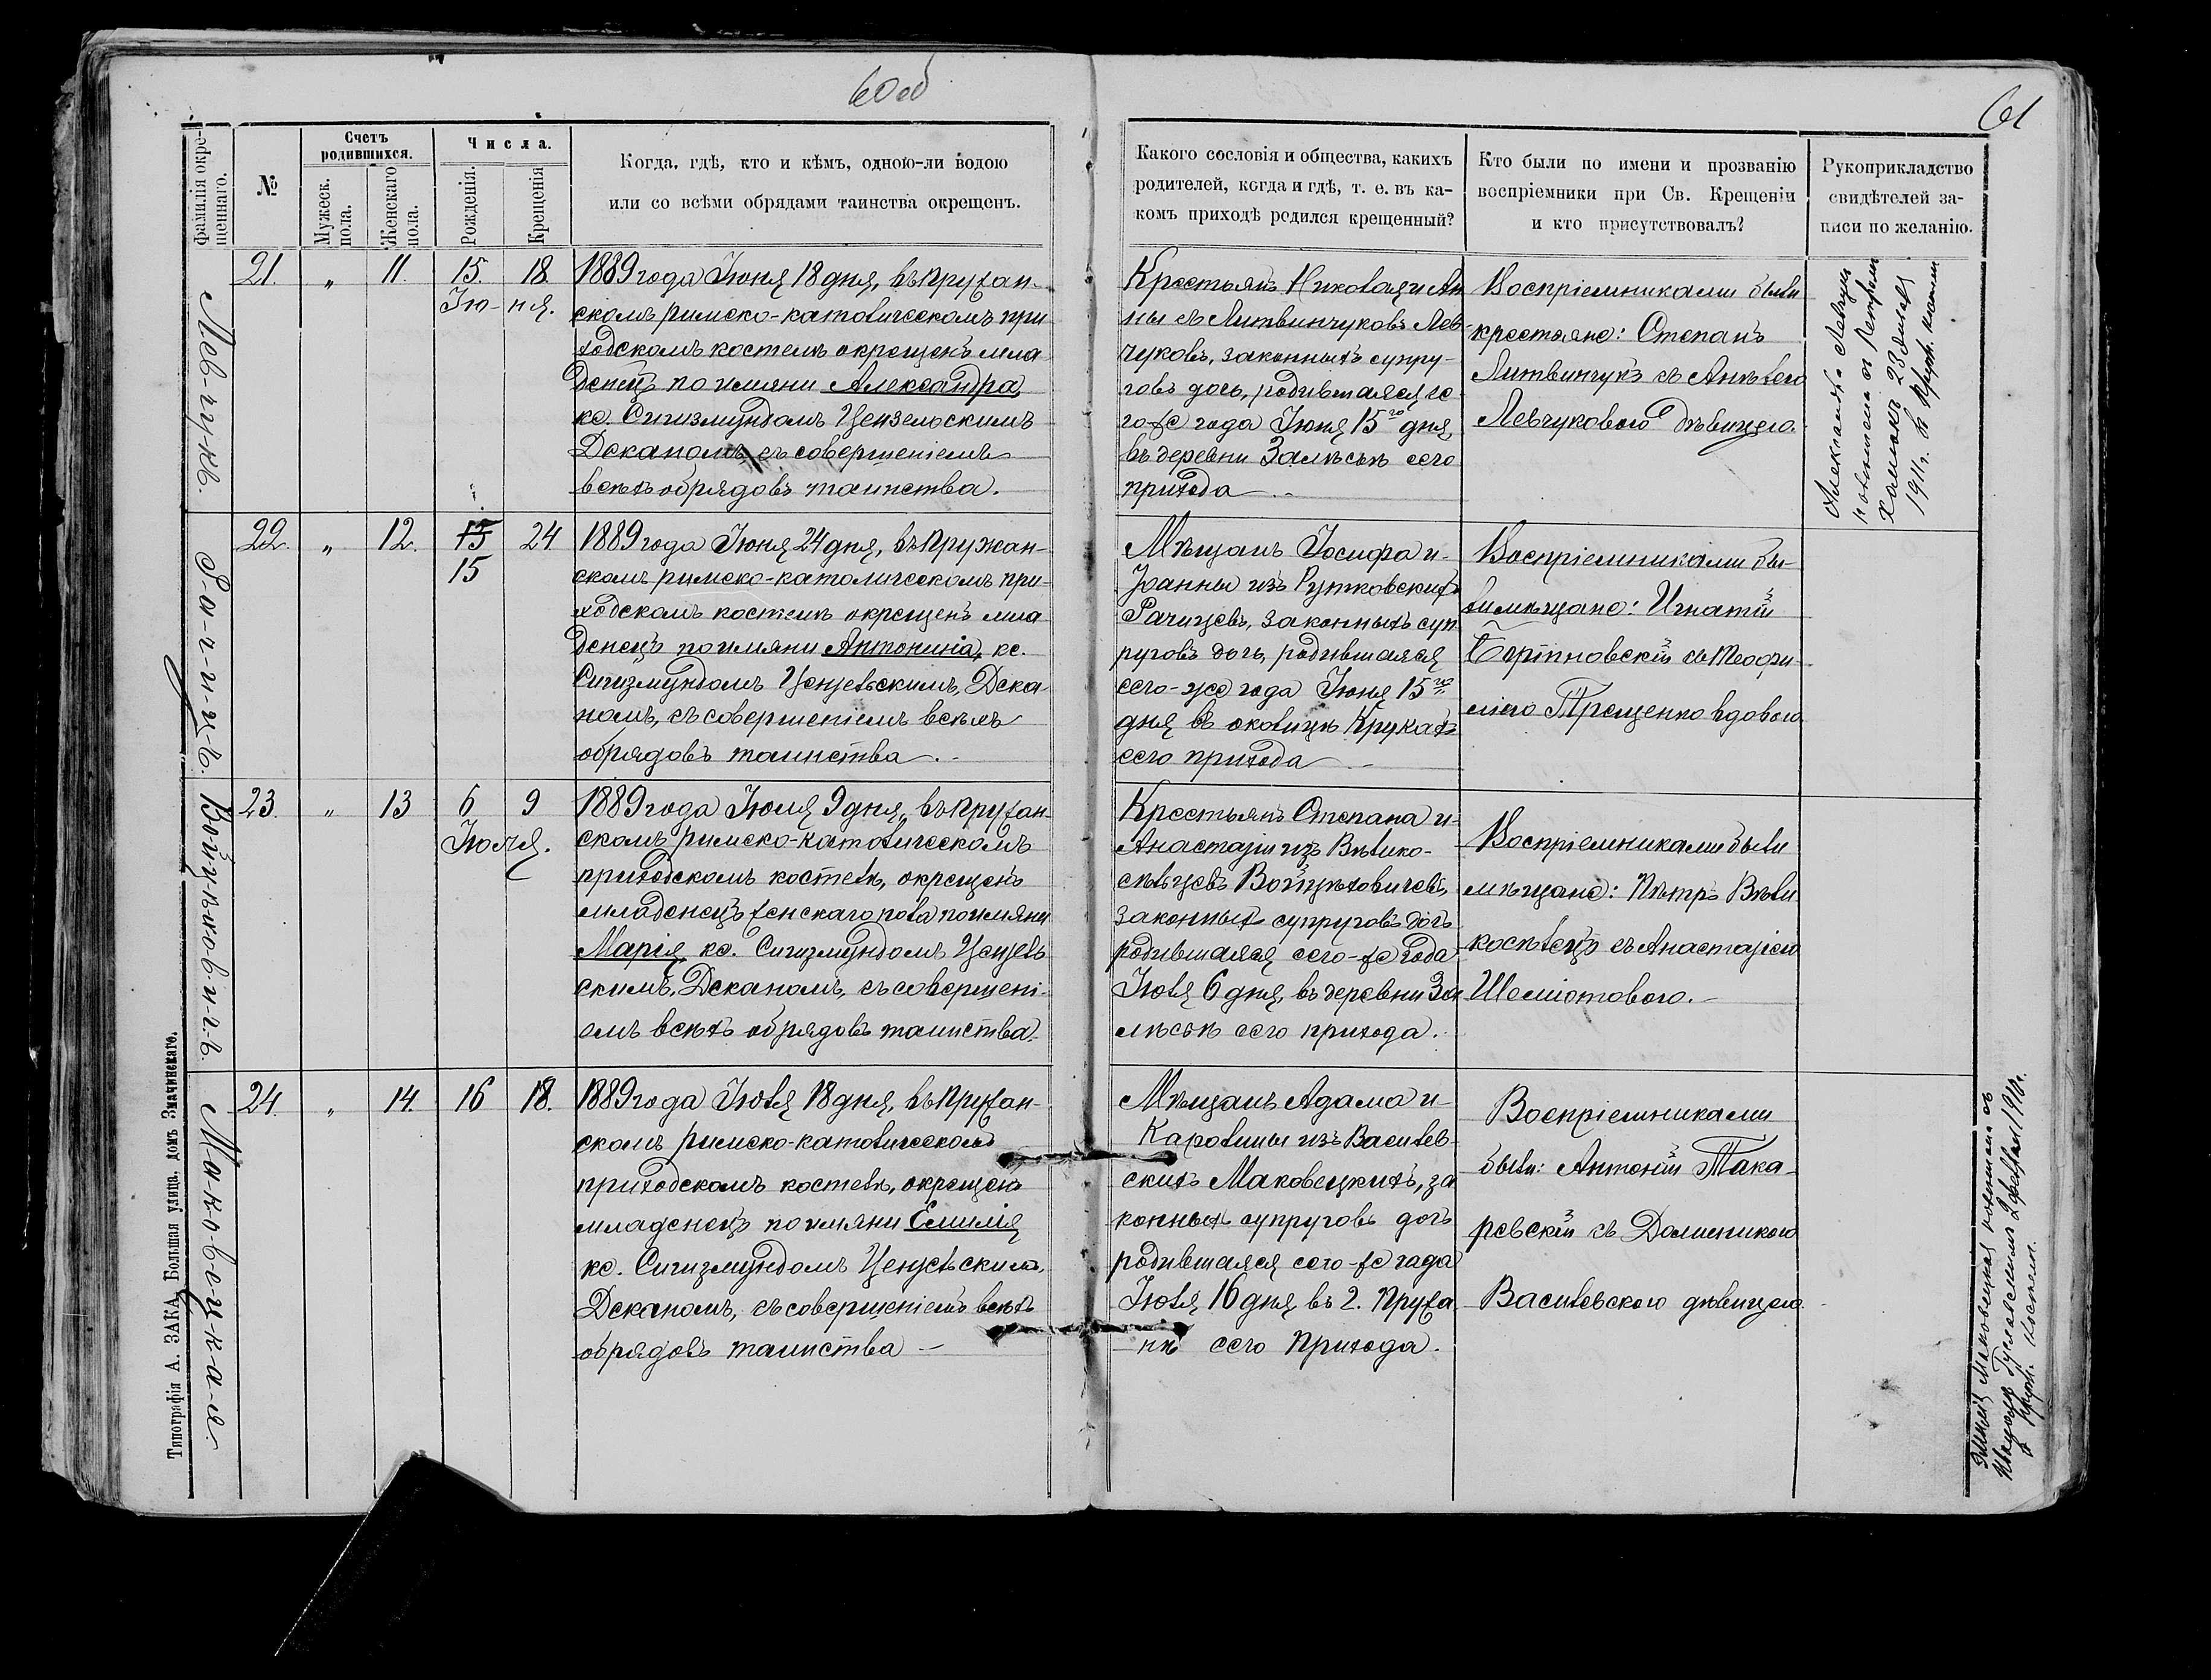 60 об
61
Фамилія окре-
щеннаго.
№
Счетъ
родившихся.
Мужеск.
пола.
Женскаго
пола.
Числа.
Рожденія.
Крещенія
Когда, гдѣ, кто и кѣмъ, одною-ли водою
или со всѣми обрядами таинства окрещенъ.
Какого сословія и общества, какихъ
родителей, когда и гдѣ, т. е. въ ка-
комъ приходѣ родился крещенный?
Кто были по имени и прозванію
воспріемники при Св. Крещеніи
и кто присутствовалъ?
Рукоприкладство
свидѣтелей за-
писи по желанію.
Лев-чукъ.
21. " 11. 15. 18.
Ію-ня.
1889 года Іюня 18 дня, въ Пружан-
скомъ римско-католическомъ при
ходскомъ костелѣ окрещенъ мла
денецъ по имяни Александра,
кс. Сигизмундомъ Цензельскимъ
Деканомъ, съ совершеніемъ
всѣхъ обрядовъ таинства.
Крестьянъ Николая и Ан
ны съ Литвинчуковъ Лев-
чуковъ, законныхъ супру-
говъ дочь, родившаяся се-
го-же года Іюня 15го дня,
въ деревни Залѣсьѣ сего
прихода
Воспріемниками были
крестьяне: Степанъ
Литвинчукъ съ Анѣлею
Левчуковою дѣвицею.
23 января
1911 г. в Пруж. костел
Р-а-ч-и-ц-ъ.
22. " 12. 15 24
15
1889 года Іюня 24 дня, въ Пружан-
скомъ римско-католическомъ при-
ходскомъ костелѣ окрещенъ мла
денецъ по имяни Антонина, кс.
Сигизмундомъ Цензельскимъ, Дека-
номъ, съ совершеніемъ всѣхъ
обрядовъ таинства.
Мѣщанъ Іосифа и-
Іоанны изъ Рутковскихъ
Рачицевъ, законныхъ суп-
руговъ дочь, родившаяся
сего-же года Іюня 15го
дня въ околицѣ Крукахъ
сего прихода
Воспріемниками бы-
ли мѣщане: Игнатій
съ Теофи-
лією Трещенко вдовою
Вой-ц-ѣ-хо-в-и-ч-ъ.
23. " 13 6 9
Іюля.
1889 года Іюля 9 дня, въ Пружан-
скомъ римско-католическомъ
приходскомъ костелѣ, окрещенъ
младенецъ женскаго пола по имяни
Марія, кс. Сигизмундомъ Цензель
скимъ, Деканомъ, съ совершені-
емъ всѣхъ обрядовъ таинства.
Крестьянъ Степана и-
Анастазіи изъ Вѣлико-
сѣльцевъ Войцѣховичевъ,
законныхъ супруговъ дочь
родившаяся сего-же года
Іюля 6 дня, въ деревни За
лѣсьѣ сего прихода.
Воспріемниками были
мѣщане: Пѣтръ Вѣли
косѣлецъ съ Анастазією
Шеміотовою.
М-а-к-о-в-е-ц-к-а-я.
24. " 14. 16 18.
1889 года Іюля 18 дня, въ Пружан-
скомъ римско-католическомъ
приходскомъ костелѣ, окрещенъ
младенецъ по имяни Емилія
кс. Сигизмундомъ Цензельскимъ,
Деканомъ, съ совершеніемъ всѣхъ
обрядовъ таинства
Мѣщанъ Адама и-
Каролины изъ Василев-
скихъ Маковецкихъ, за
конныхъ супруговъ дочь
родившаяся сего-же года
Іюля 16 дня въ г. Пружа
нѣ сего прихода.
Воспріемниками
были: Антоній Така-
ревскій съ Доминикою
Василевскою дѣвицею.
Емилія Маковецкая повенчана съ
в Пруж. костел.
Типографія А. ЗАКА, Большая улица, домъ Значинскаго.